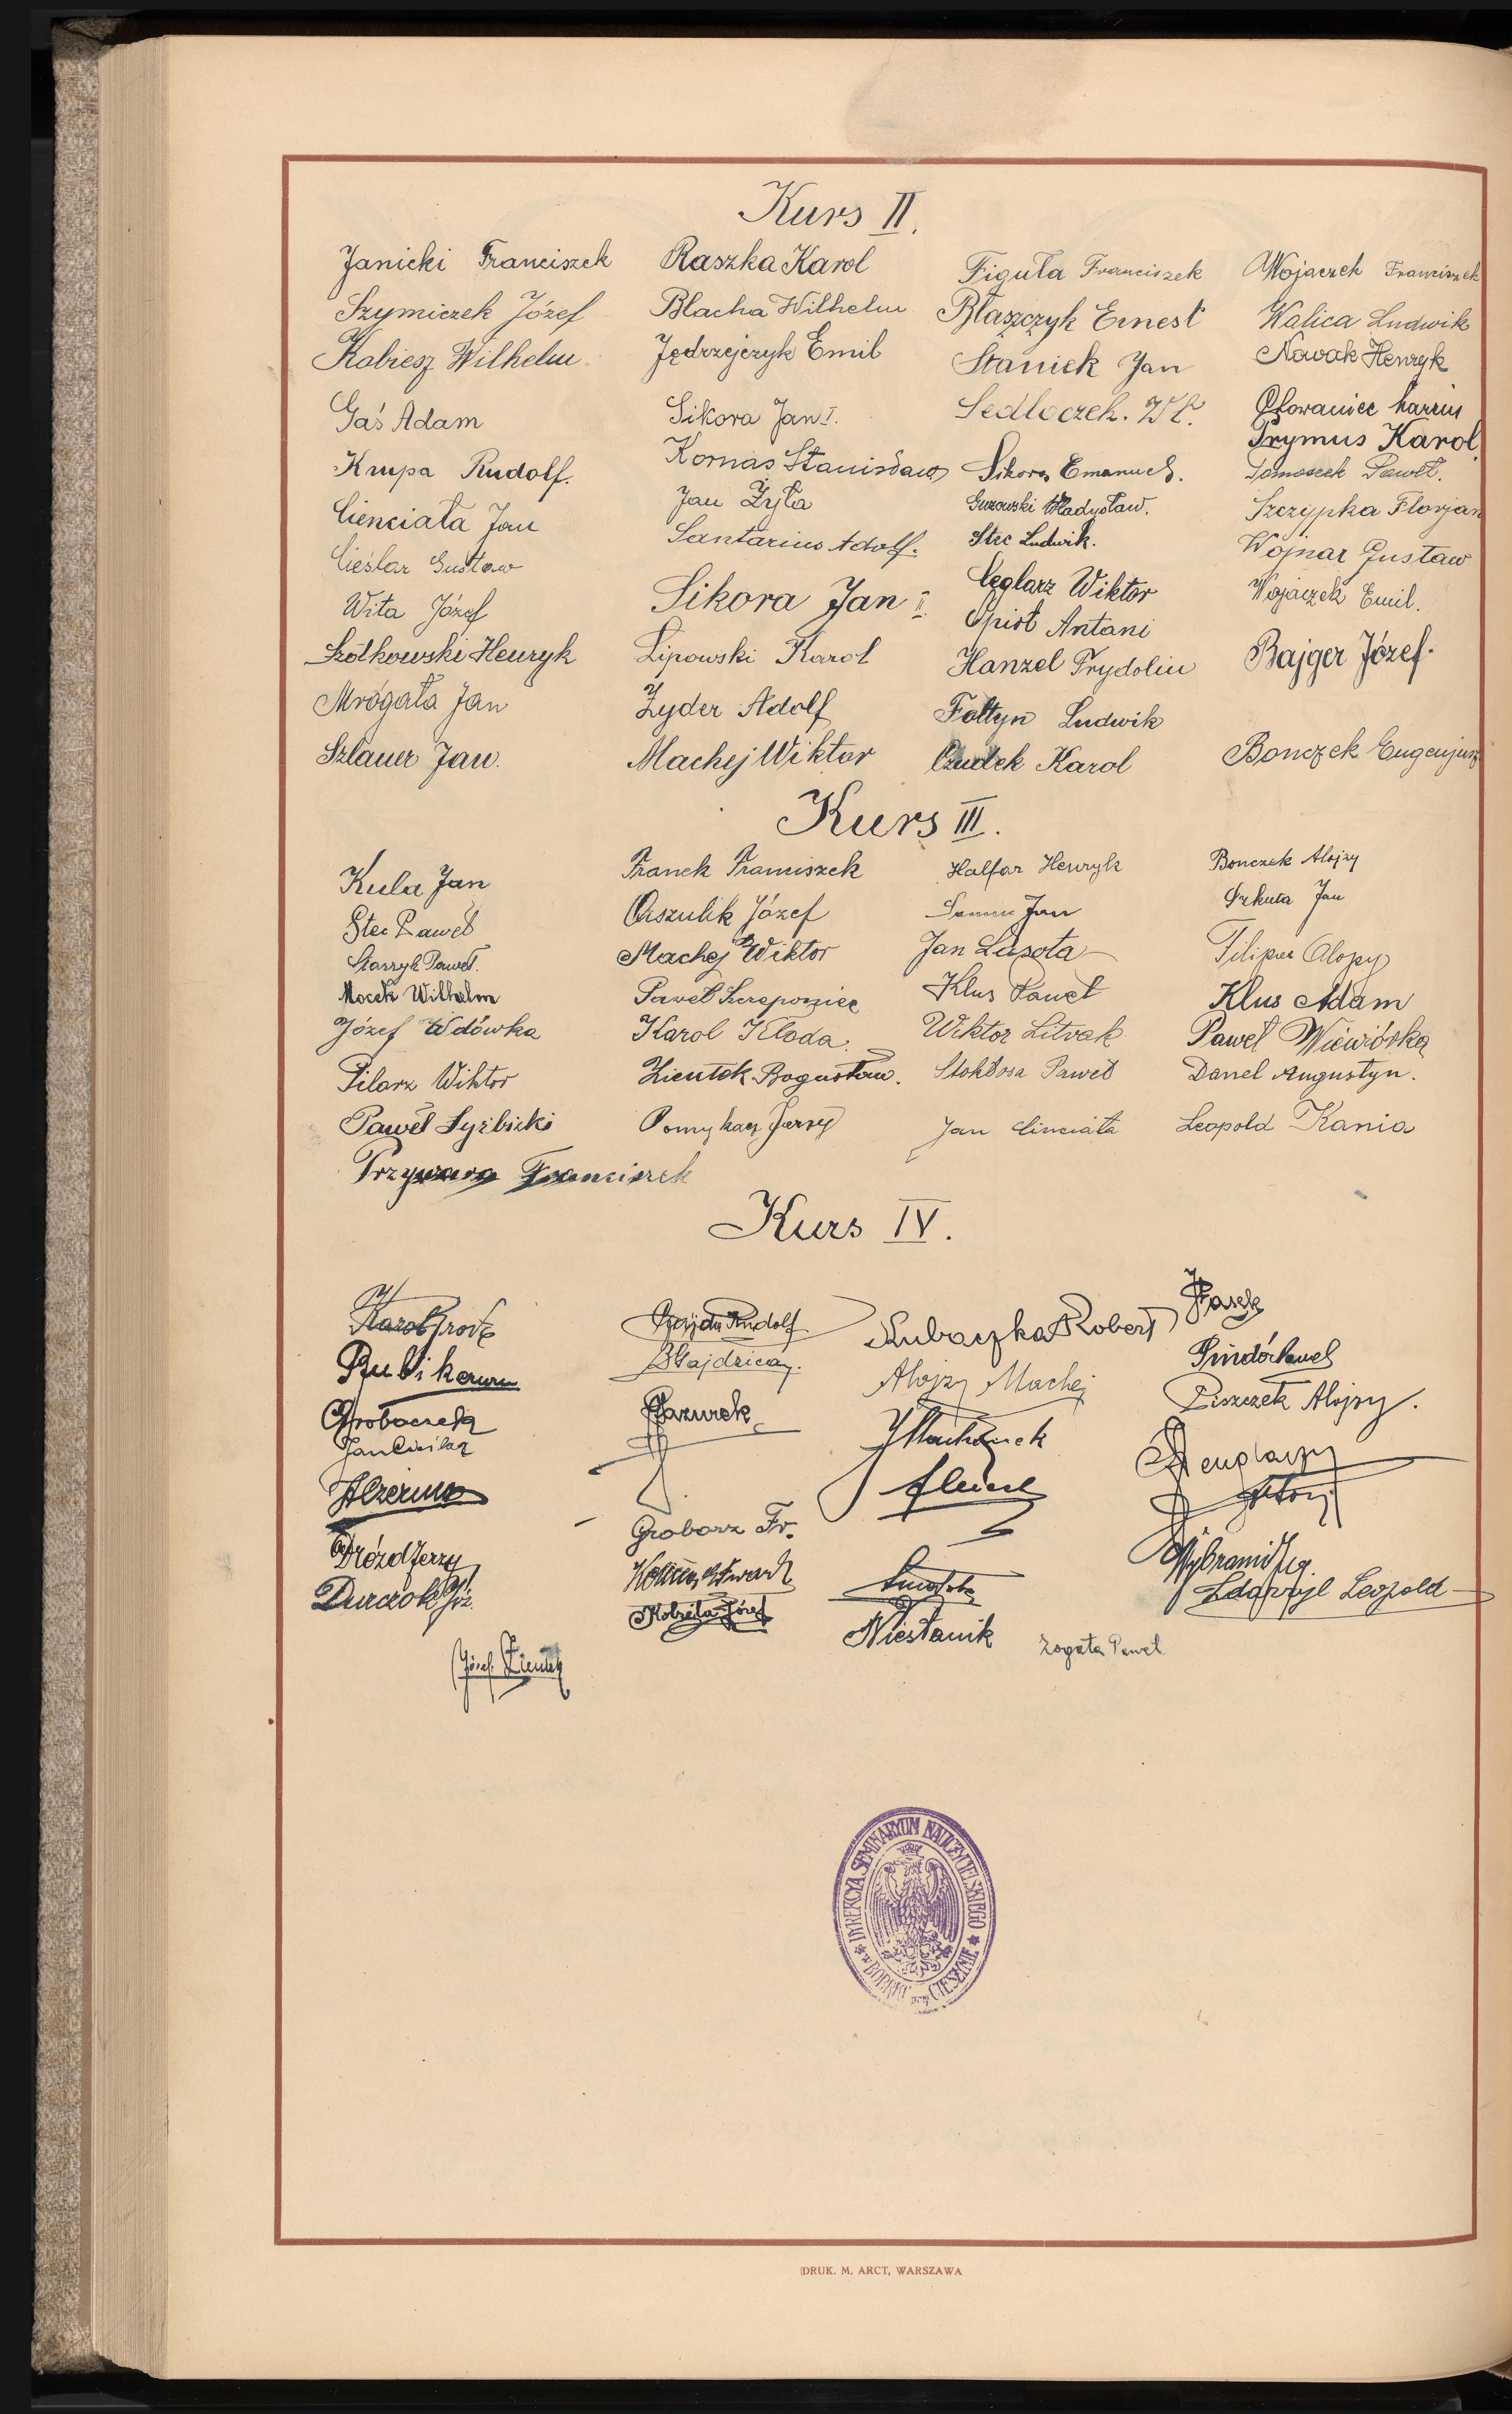 Kurs II.
Janicki Franciszek
Szymiczek Józef
Kobiesz Wilhelm
Gaś Adam
Krupa Rudolf.
Cienciała Jan
Cieślar Gustaw
Wita Józef
Szółkowski Henryk
Mrógała Jan
Szlauer Jan.
Raszka Karol
Blacha Wilhelm
Jędrzejczyk Emil
Sikora Jan I.
Kornas Stanisław
Jan Żyła
Santarius Adolf.
Sikora Jan II.
Lipowski Karol
Żyder Adolf
Machej Wiktor
Figuła Franciszek
Błaszczyk Ernest
Staniek Jan
Sedloczek. Wł.
Sikora Emanuel.
Guzowski Władysław.
Stec Ludwik.
Ceglarz Wiktor
Opioł Antoni
Hanzel Frydolin
Fołtyn Ludwik
Czudek Karol
Wojaczek Franciszek
Walica Ludwik
Nowak Henryk
Prymus Karol
Tomoszek Paweł.
Szczypka Florjan
Wojnar Gustaw
Wojaczek Emil.
Bajger Józef.
Bonczek Eugenjusz
Kurs III.
Kula Jan
Stec Paweł
Staszyk Paweł.
Mocek Wilhelm
Józef Wdówka
Pilarz Wiktor
Paweł Syrbicki
Przywara Franciszek
Franek Franciszek
Orszulik Józef
Machej Wiktor
Paweł Szczeponiec
Karol Kłoda.
Zientek Bogusław.
Pomykacz Jerzy
Halfar Henryk
Jan
Jan Lasota
Klus Paweł
Wiktor Litwak
Stokłosa Paweł
Jan Cinciała
Bonczek Alojzy
Szkuta Jan
Filipek Alojzy
Klus Adam
Paweł Wiewiórka
Danel Augustyn.
Leopold Kania
Kurs IV.
Karol Grodź
Grobaczek
Jan Cieślar
Dróżd Jerzy
Durczok Józ.
Józef Zientek
Gajda Rudolf
BGajdzica.
Mazurek
Groborz Fr.
Kobiela Józef
Kubaczka Robert
Alojzy Machej
Niesłanik
Żogała Paweł
Pasek
Pindór Paweł
Piszczek Alojzy.
Leopold
DYREKCYA SEMINARYUM NAUCZYCIELSKIEGO
w BOBRKU przy CIESZYNIE
DRUK. M. ARCT, WARSZAWA